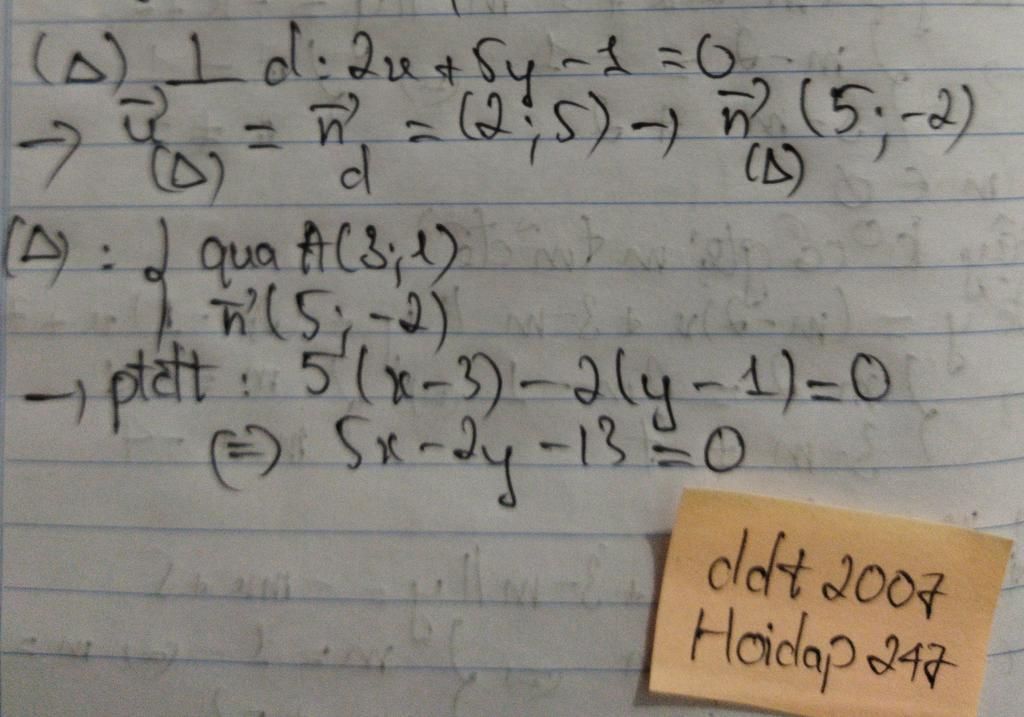 (Δ) ⊥ d: 2x + 5y - 1 = 0
→ u⃗(Δ) = n⃗d = (2; 5) → n⃗(Δ) (5; -2)
(Δ): { qua A(3; 1)
n⃗(5; -2)
→ ptđt: 5(x - 3) - 2(y - 1) = 0
(=) 5x - 2y - 13 = 0
ddt 2007
Hoidap 247